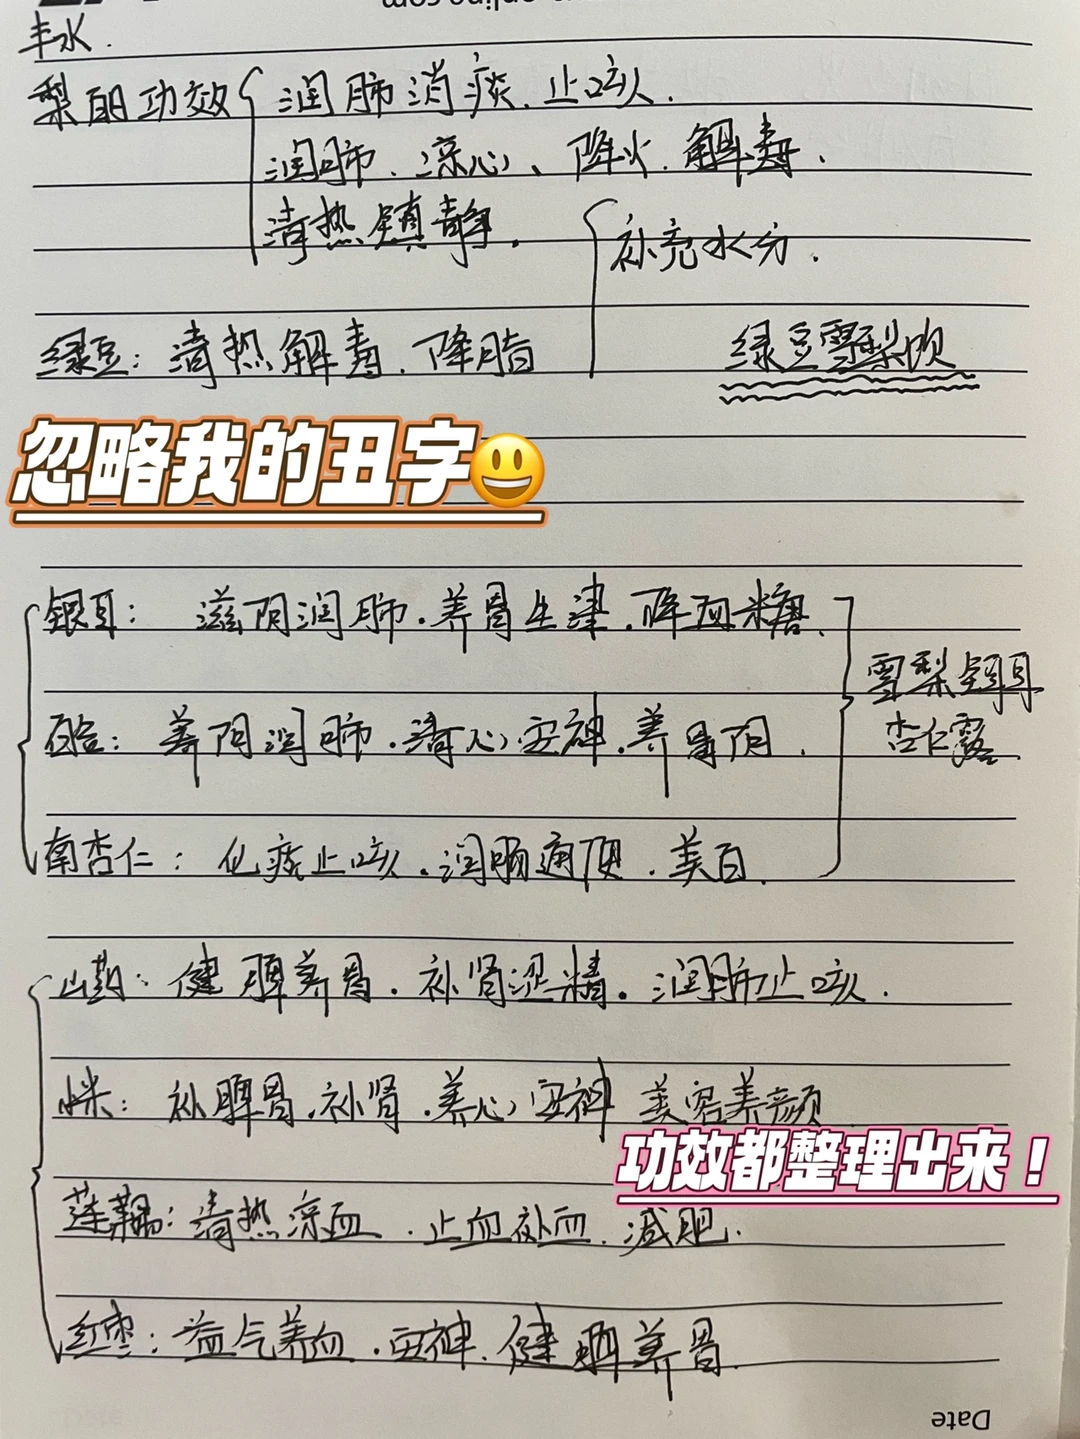 丰水.
梨的功效 润肺消痰、止咳.
润肺、凉心、降火、解毒.
清热镇静.
补充水分.
绿豆：清热解毒、降脂
绿豆雪梨
忽略我的丑字😃
银耳： 滋阴润肺.养胃生津.降血糖.
雪梨银耳
杏仁露
百合：养阴润肺.清心安神.养胃阴.
南杏仁：化痰止咳.润肠通便.美白.
山药：健脾养胃.补肾涩精.润肺止咳.
小米：补脾胃.补肾.养心安神 美容养颜
功效都整理出来！
莲藕：清热凉血.止血补血.减肥.
红枣：益气养血.安神.健脾养胃.
Date